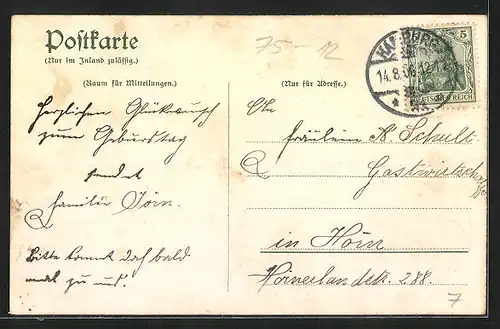 Postkarte
(Nur im Inland zulässig.)
(Raum für Mitteilungen.)
Herzlichen Glückwunsch
zum Geburtstag
sendet
Familie Jörn.
Bitte kommt doch bald
mal zu uns.
75-12
14.8.06.12
5
DEUTSCHES REICH
(Nur für Adresse.)
Fräulein A Schult
Gastwirtschaft
in Horn
Hornerlandstr. 288.
7